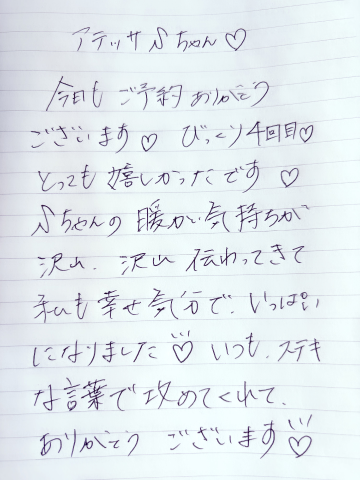 アテッサ Sちゃん♡
今日も ご予約 ありがとう
ございます♡ びっくり4回目♡
とっても 嬉しかったです ♡
Sちゃんの 暖かい気持ちが
沢山、沢山 伝わってきて
私も 幸せ気分で、いっぱい
になりました♡ いつも、ステキ
な言葉で 攻めてくれて、
ありがとう ございます♡